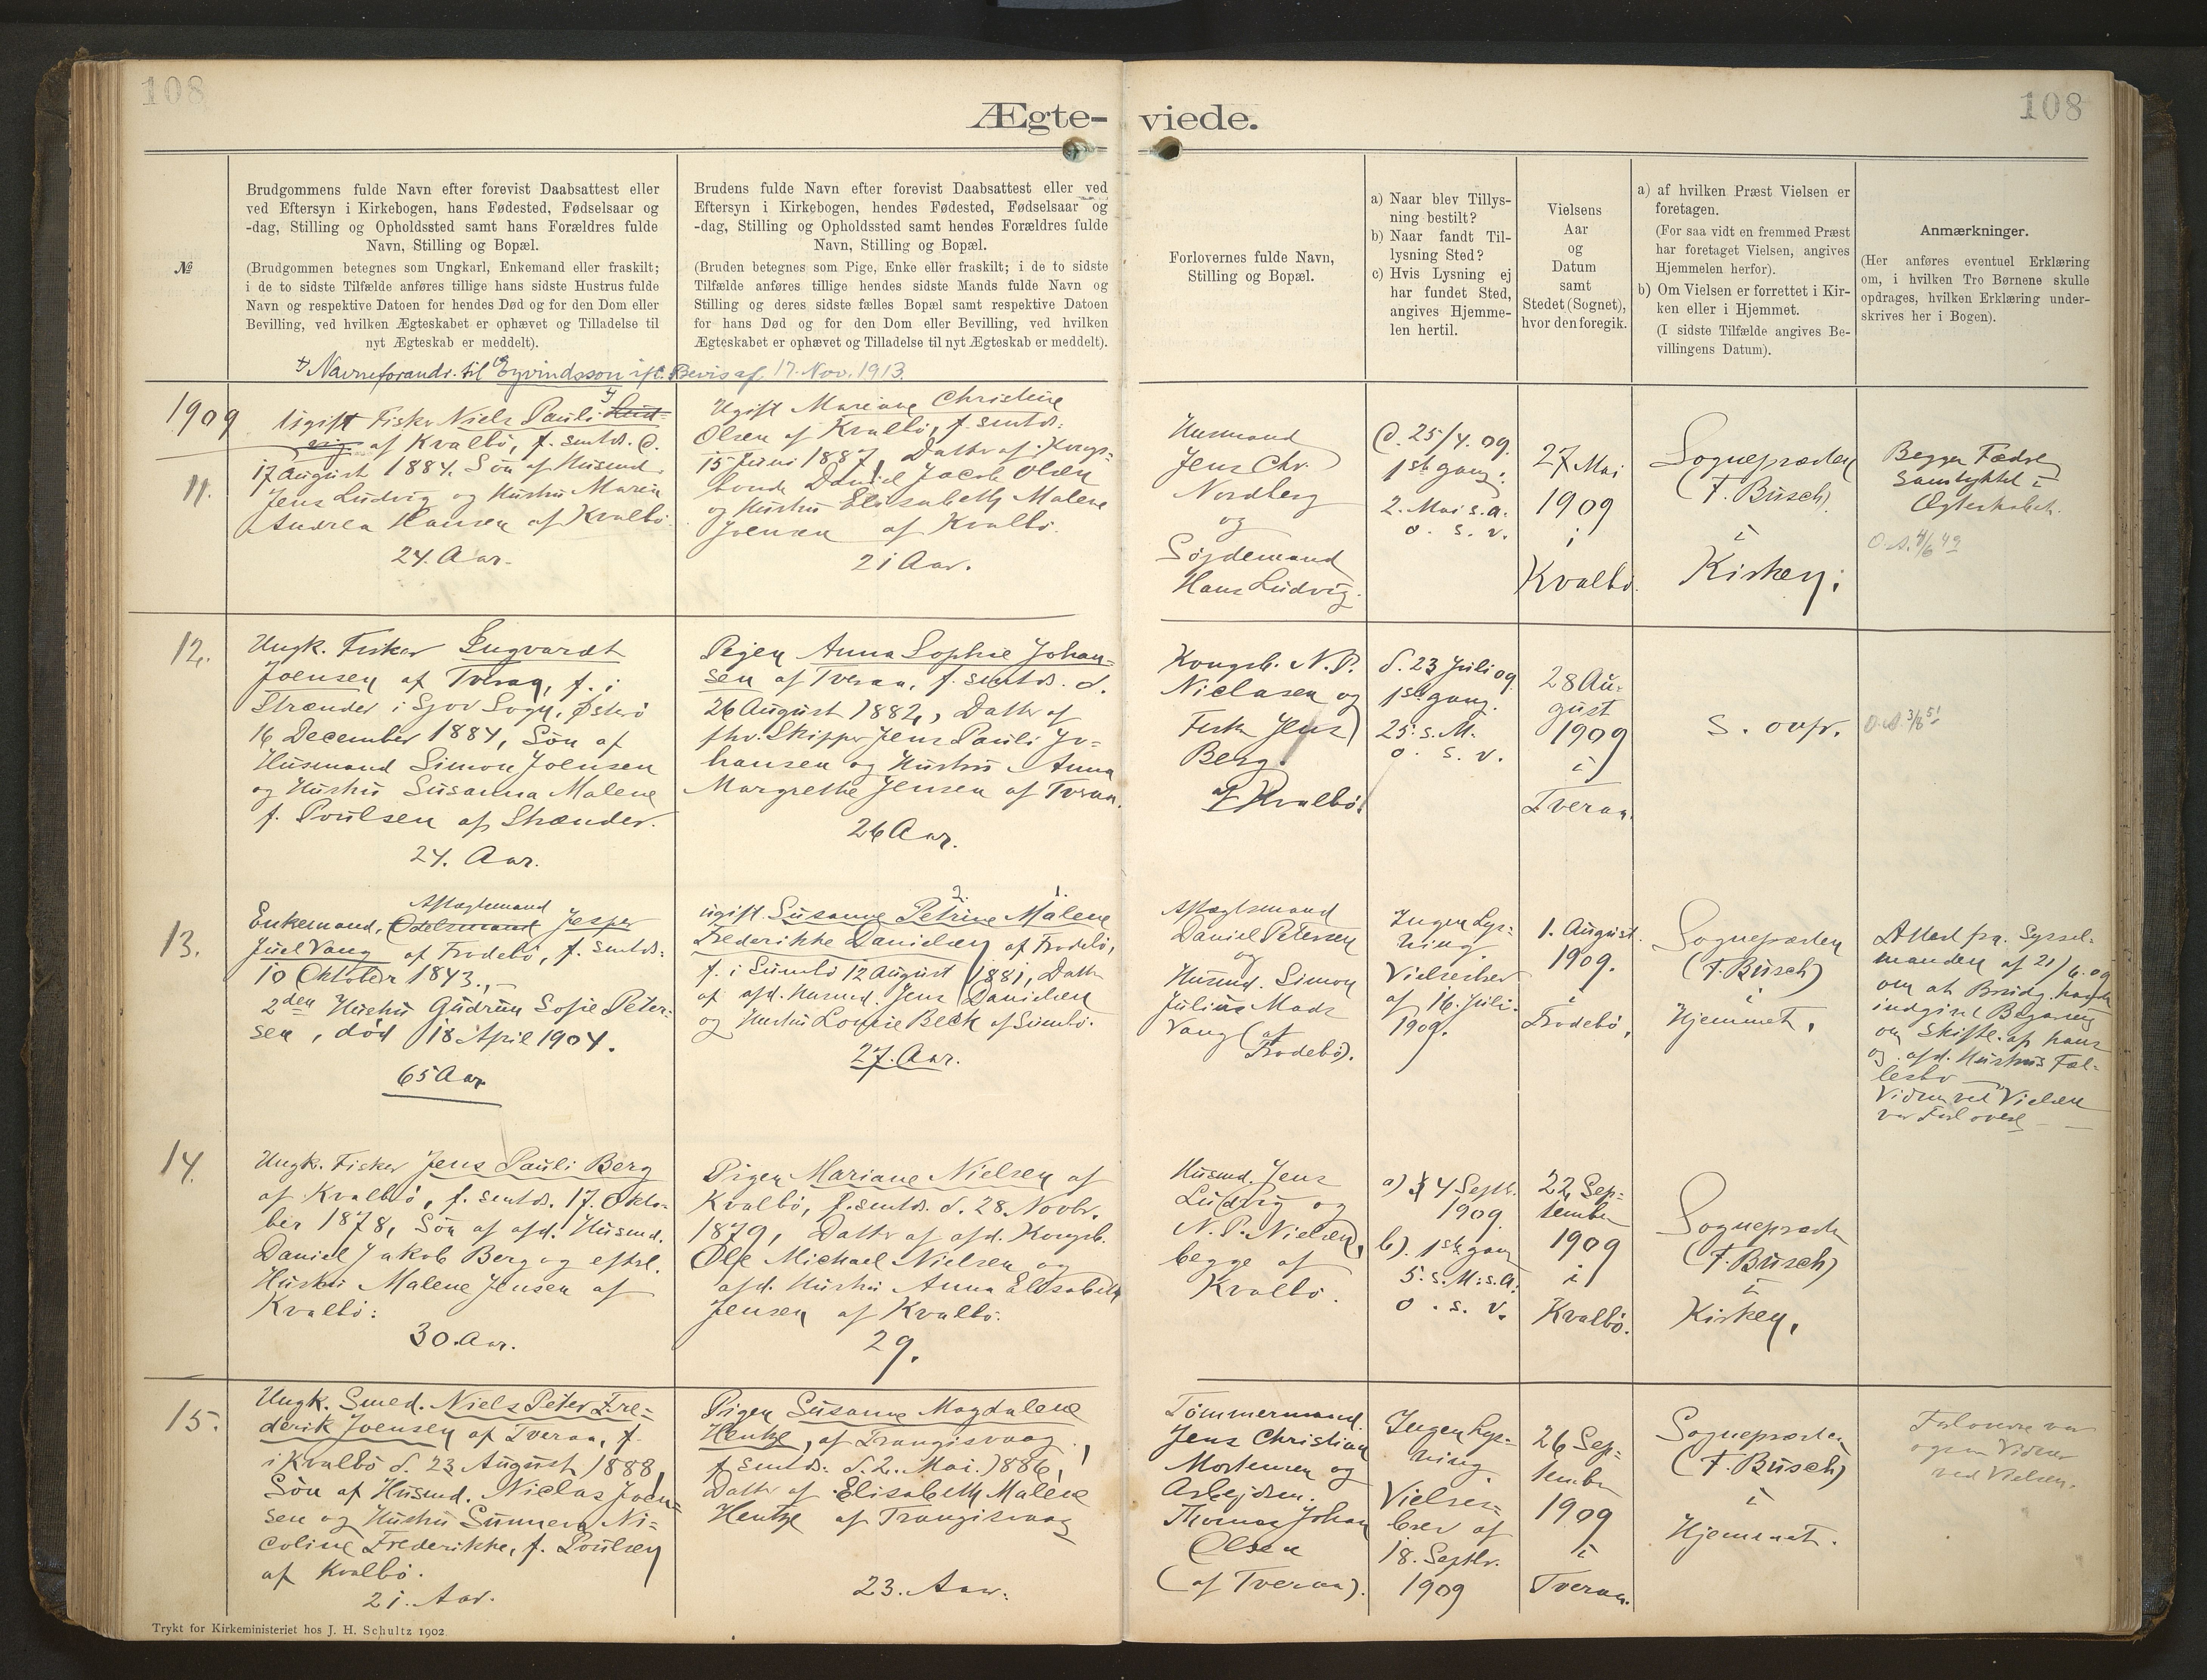 108
108
Ægte-
viede.
№
Brudgommens fulde Navn efter forevist Daabsattest eller
ved Eftersyn i Kirkebogen, hans Fødested, Fødselsaar og
-dag, Stilling og Opholdssted samt hans Forældres fulde
Navn, Stilling og Bopæl.
(Brudgommen betegnes som Ungkarl, Enkemand eller fraskilt;
i de to sidste Tilfælde anføres tillige hans sidste Hustrus fulde
Navn og respektive Datoen for hendes Død og for den Dom eller
Bevilling, ved hvilken Ægteskabet er ophævet og Tilladelse til
nyt Ægteskab er meddelt).
Brudens fulde Navn efter forevist Daabsattest eller ved
Eftersyn i Kirkebogen, hendes Fødested, Fødselsaar og
-dag, Stilling og Opholdssted samt hendes Forældres fulde
Navn, Stilling og Bopæl.
(Bruden betegnes som Pige, Enke eller fraskilt; i de to sidste
Tilfælde anføres tillige hendes sidste Mands fulde Navn og
Stilling og deres sidste fælles Bopæl samt respektive Datoen
for hans Død og for den Dom eller Bevilling, ved hvilken
Ægteskabet er ophævet og Tilladelse til nyt Ægteskab er meddelt).
Forlovernes fulde Navn,
Stilling og Bopæl.
a) Naar blev Tillys-
ning bestilt?
b) Naar fandt Til-
lysning Sted?
c) Hvis Lysning ej
har fundet Sted,
angives Hjemme-
len hertil.
Vielsens
Aar
og
Datum
samt
Stedet (Sognet),
hvor den foregik.
a) af hvilken Præst Vielsen er
foretagen.
(For saa vidt en fremmed Præst
har foretaget Vielsen, angives
Hjemmelen herfor).
b) Om Vielsen er forrettet i Kir-
ken eller i Hjemmet.
(I sidste Tilfælde angives Be-
villingens Datum).
Anmærkninger.
(Her anføres eventuel Erklæring
om, i hvilken Tro Børnene skulle
opdrages, hvilken Erklæring under-
skrives her i Bogen).
Navneforandr. til Eyvindsson ifl. Bevis af 17. Nov. 1913.
1909
11.
Ugift Fisker Niels Pauli Lud-
vig af Kvalbø, f. smtds. d.
17 August 1884. Søn af Husmd.
Jens Ludvig og Hustru Maren
Andrea Hansen af Kvalbø
24. Aar.
Ugift Mariane Christine
Olsen af Kvalbø, f. smtds.
15 Juni 1887, Datter af Kongs-
bonde Daniel Jacob Olsen
og Hustru Elisabeth Malene
Joensen af Kvalbø.
21 Aar.
Husmand
Jens Chr.
Nordberg
og
Hans Ludvig.
d. 25/4. 09.
1ste gang:
2. Mai s. A.
o. s. v.
27 Mai
1909
i
Kvalbø.
Sognepræsten
(F. Busch)
i
Kirken.
Begges Fædre
Samtykket i
Ægteskabet.
12.
Ungk. Fisker Engvardt
Joensen af Tveraa, f. i
Strænder i Sjov Sogn, Østerø
16 December 1884, Søn af
Husmand Simon Joensen
og Hustru Susanna Malene
f. Poulsen af Strænder.
24. Aar.
Pigen Anna Sophie Johan-
sen af Tveraa, f. smtds. d.
26 August 1882, Datter af
fhv. Skipper Jens Pauli Jo-
hansen og Hustru Anna
Margrethe Jensen af Tveraa.
26 Aar.
Kongsb. N. P.
Niclasen og
Fisker Jens
Berg
af Kvalbø.
d. 23 Juli 09
1ste gang.
25. s. M.
o. s. v.
28 Au-
gust
1909
i
Tveraa.
s. ovfr.
13.
Aftægtsmand
Enkemand, Odelsmand Jesper
Juel Vang af Frodebø, f. smtds.
10 Oktober 1843.,
2den Hustru Gudrun Sofie Peter-
sen, død 18 April 1904.
65 Aar
2. 1.
ugift. Susanne Petrine Malene
Frederikke Danielsen af Frodebø,
f. i Sumbø 12 August 1881, Datter
af afd. Husmd. Jens Danielsen
og Hustru Louise Beck af Sumbø.
27. Aar.
Aftægtsmand
Daniel Petersen
og
Husmd. Simon
Julius Mads
Vang (af
Frodebø).
Ingen Lys-
ning.
Vielsesbrev
af 16. Juli.
1909.
1. August.
1909.
i
Frodebø.
Sognepræsten
(F. Busch)
i
Hjemmet.
Attest fra Syssel-
manden af 21/6. 09
om at Brudg. havde
indgivet Begæring
om Skifte af hans
og afd. Hustrus Fæl-
lesbo
Vidner ved Vielsen
var Forloverne
14.
Ungk. Fisker Jens Pauli Berg
af Kvalbø, f. smtds. 17. Okto-
ber 1878, Søn af afd. Husmd.
Daniel Jakob Berg og efterl.
Hustru Malene Jensen af
Kvalbø:
30. Aar.
Pigen Mariane Nielsen af
Kvalbø, f. smtds. d. 28. Novbr.
1879, Datter af afd. Kongsb.
Ole Michael Nielsen og
afd. Hustru Anna Elisabeth
Jensen af Kvalbø.
29.
Husmd. Jens
Ludvig og
N. P. Nielsen,
begge af
Kvalbø.
a) 4 Septbr.
1909
b). 1ste gang
5. s. M. s. A.
o. s. v.
22 Sep-
tember
1909
i
Kvalbø.
Sognepræsten
(F. Busch)
i
Kirken.
15.
Ungk. Smed. Niels Peter Fre-
derik Joensen af Tveraa, f.
i Kvalbø d. 23 August 1888,
Søn af Husmd. Niclas Joen-
sen og Hustru Sunneva Ni-
coline Frederikke, f. Poulsen
af Kvalbø.
21. Aar.
Pigen Susanne Magdalene
Hentze, af Trangisvaag,
f. smtds. d. 2. Mai. 1886,
Datter af Elisabeth Malene
Hentze af Trangisvaag
23. Aar.
Tømmermand
Jens Christian
Mortensen og
Arbejdsm.
Thomas Johan
Olsen
(af Tveraa).
Ingen Lys-
ning.
Vielses-
brev af
18. Septbr.
1909
26 Sep-
tember
1909
i
Tveraa.
Sognepræsten
(F. Busch)
i
Hjemmet.
Forloverne var
ogsaa Vidner
ved Vielsen.
Trykt for Kirkeministeriet hos J. H. Schultz 1902.